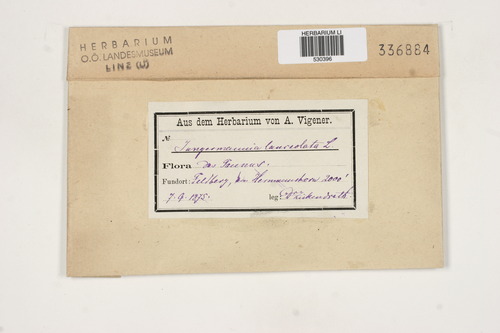 HERBARIUM
O.Ö. LANDESMUSEUM
LINZ (LI)
HERBARIUM LI
530396
336884
Aus dem Herbarium von A. Vigener.
№
Jungermannia lanceolata L
Flora des Taunus.
Fundort: Feldberg, 2000'
7. 9. 1875. leg: